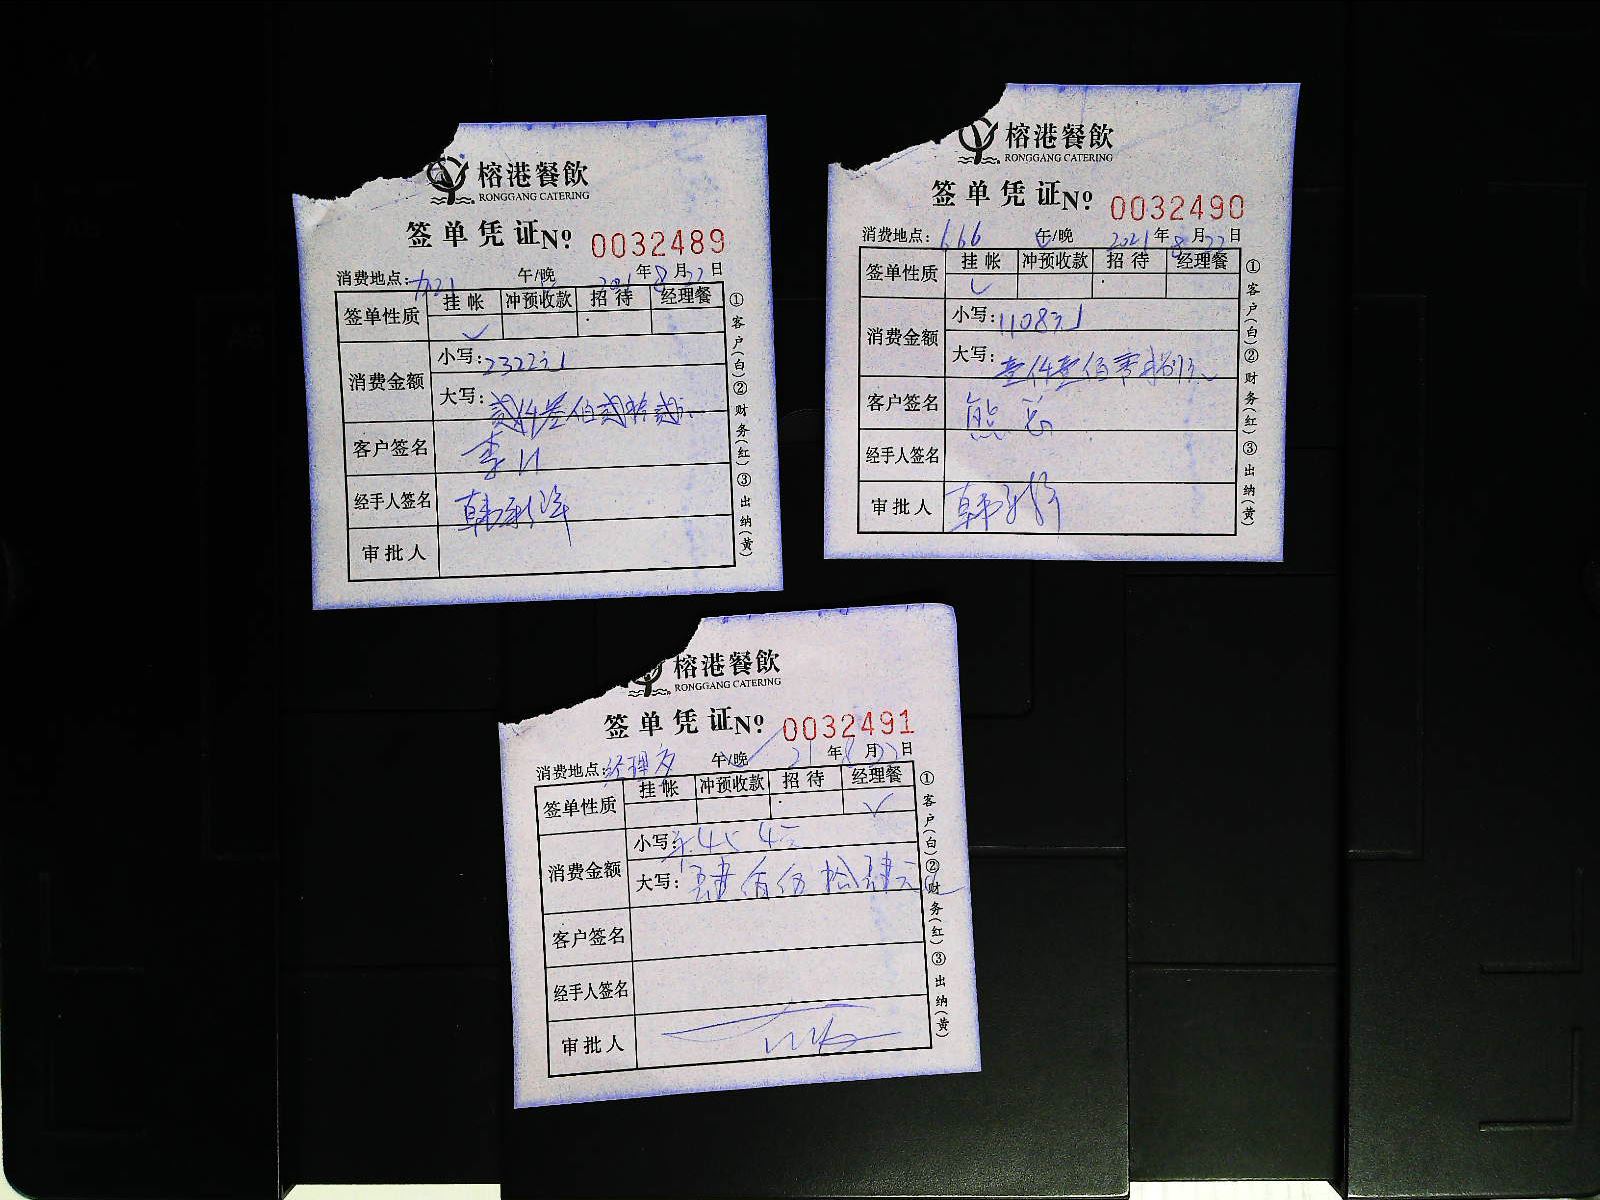 榕港餐飲
RONGGANG CATERING
签单凭证№ 0032489
消费地点: 午/晚 2021年8月22日
签单性质 挂帐 冲预收款 招待 经理餐
✓
消费金额 小写:2322元
大写:贰仟叁佰贰拾贰元
客户签名 李
经手人签名 韩
审批人
①客户(白)②财务(红)③出纳(黄)
榕港餐飲
RONGGANG CATERING
签单凭证№ 0032490
消费地点:666 午/晚 2021年8月22日
签单性质 挂帐 冲预收款 招待 经理餐
✓
消费金额 小写:1108元
大写:壹仟壹佰零捌元
客户签名 熊总
经手人签名
审批人 韩
①客户(白)②财务(红)③出纳(黄)
榕港餐飲
RONGGANG CATERING
签单凭证№ 0032491
消费地点:经理 午/晚 21年8月22日
签单性质 挂帐 冲预收款 招待 经理餐
✓
消费金额 小写:
大写: 佰伍拾肆元
客户签名
经手人签名
审批人
①客户(白)②财务(红)③出纳(黄)